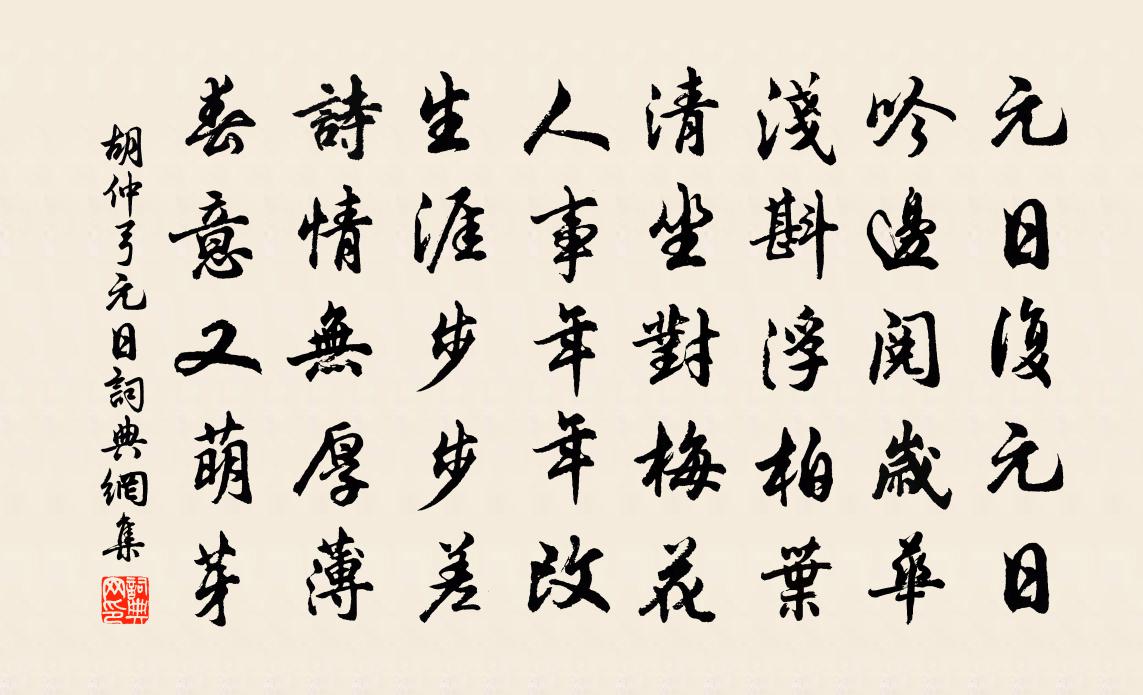 元日復元日
吟邊閱歲華
淺斟浮柏葉
清坐對梅花
人事年年改
生涯步步差
詩情無厚薄
春意又萌芽
胡仲弓元日詞典網集
詞典网印